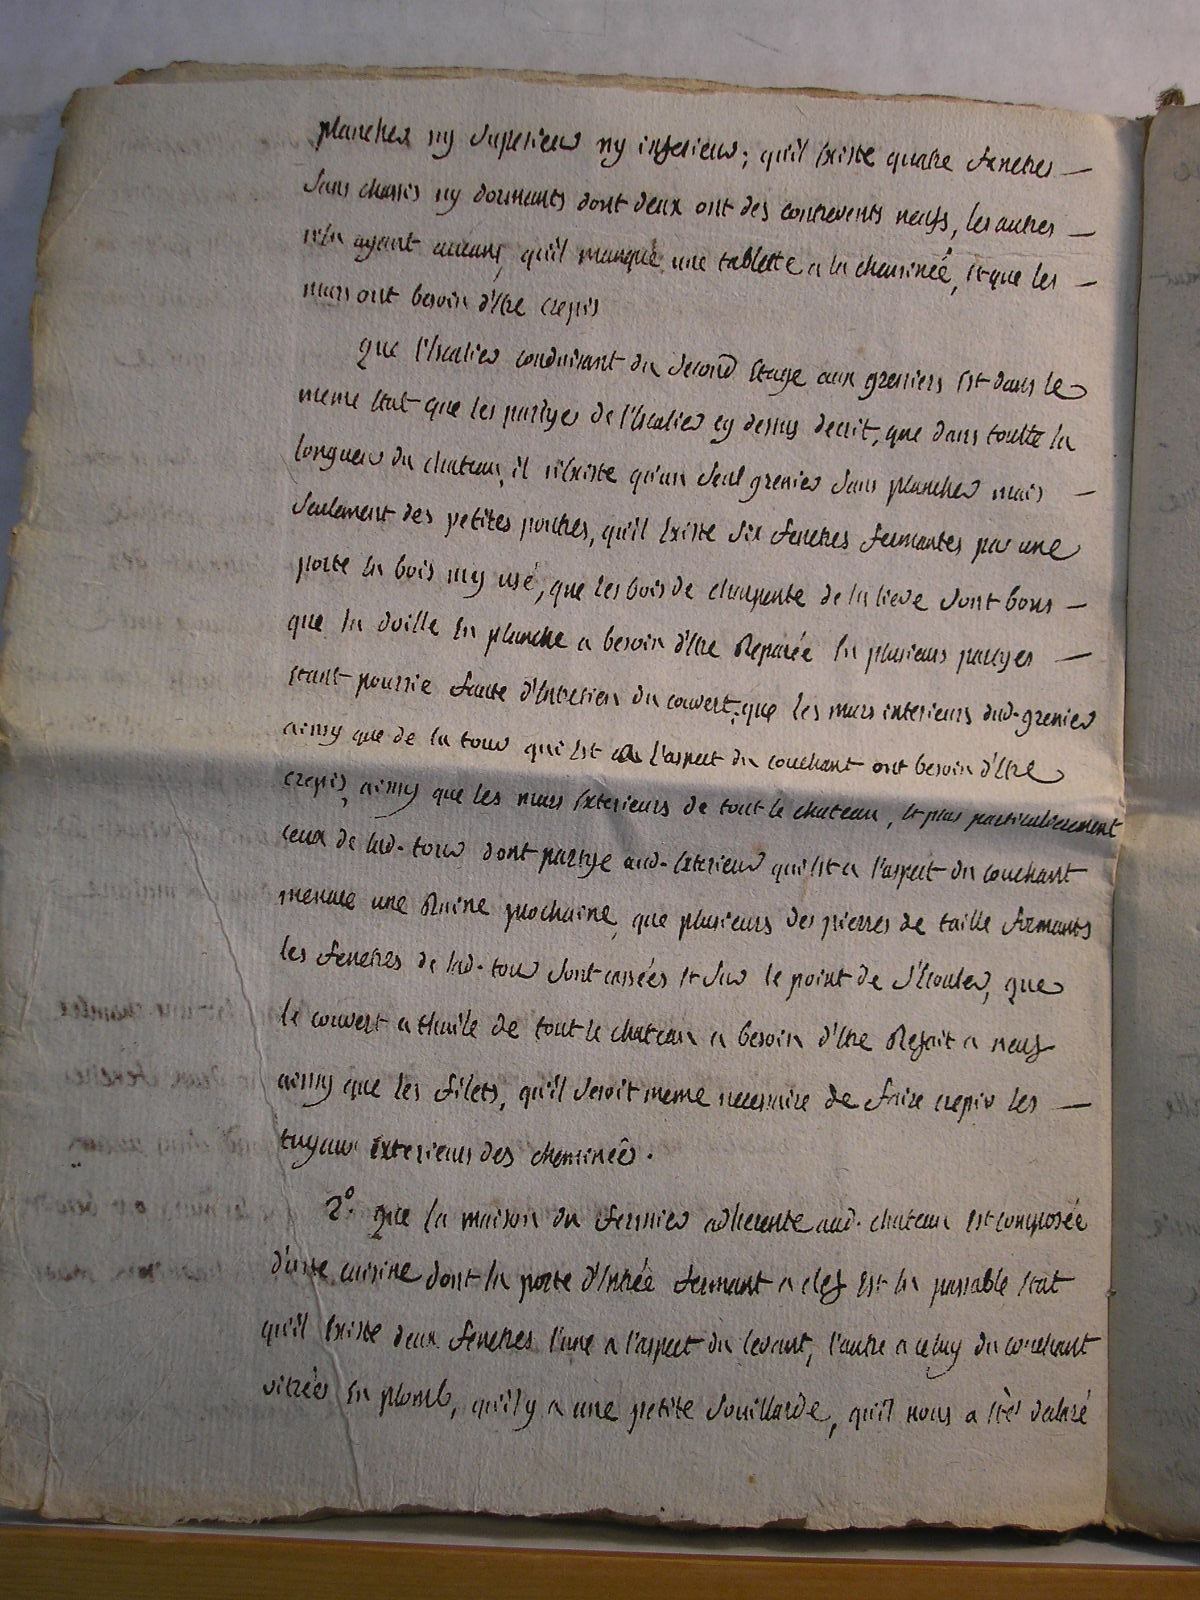 plancher ny superieur ny inferieur; qu'il Existe quatre fenetres —
sans chassis ny dormants dont deux ont des contrevents neufs, les autres —
n'En ayant aucuns, qu'il manque une tablette a la cheminée, Et que les —
murs ont besoin d'Etre crepis
que l'Escalier conduisant du second Etage aux greniers Est dans le
meme Etat que les partyes de l'Escalier cy dessus decrit, que dans toutte la
longueur du chateau, il n'Existe qu'un seul grenier sans plancher mais —
seulement des petites poutres, qu'il Existe six fenetres fermantes par une
porte En bois my usé, que les bois de charpente de la lieve sont bons —
que la voille En planche a besoin d'Etre Reparée En plusieurs partyes —
Etant pourrie faute d'Entretien du couvert; que les murs interieurs dud. grenier
ainsy que de la tour qui Est a l'aspect du couchant ont besoin d'Etre
crepis, ainsy que les murs Exterieurs de tout le chateau, Et plus particulierement
ceux de lad. tour dont partye aud. Exterieur qui Est a l'aspect du couchant
menace une Ruine prochaine, que plusieurs des pierres de taille formants
les fenetres de lad. tour sont cassées Et sur le point de s'Ecouler, que
le couvert a thuile de tout le chateau a besoin d'Etre Refait a neuf
ainsy que les filets, qu'il seroit meme necessaire de faire crepir les —
tuyaux Exterieurs des cheminéês.
2º. que la maison du fermier adherente aud. chateau Est composée
d'une cuisine dont la porte d'Entrée fermant a clef Est En passable Etat
qu'il Existe deux fenetres l'une a l'aspect du levant, l'autre a celuy du couchant
vitrées En plomb, qu'il y a une petite souillarde, qu'il nous a Eté declaré